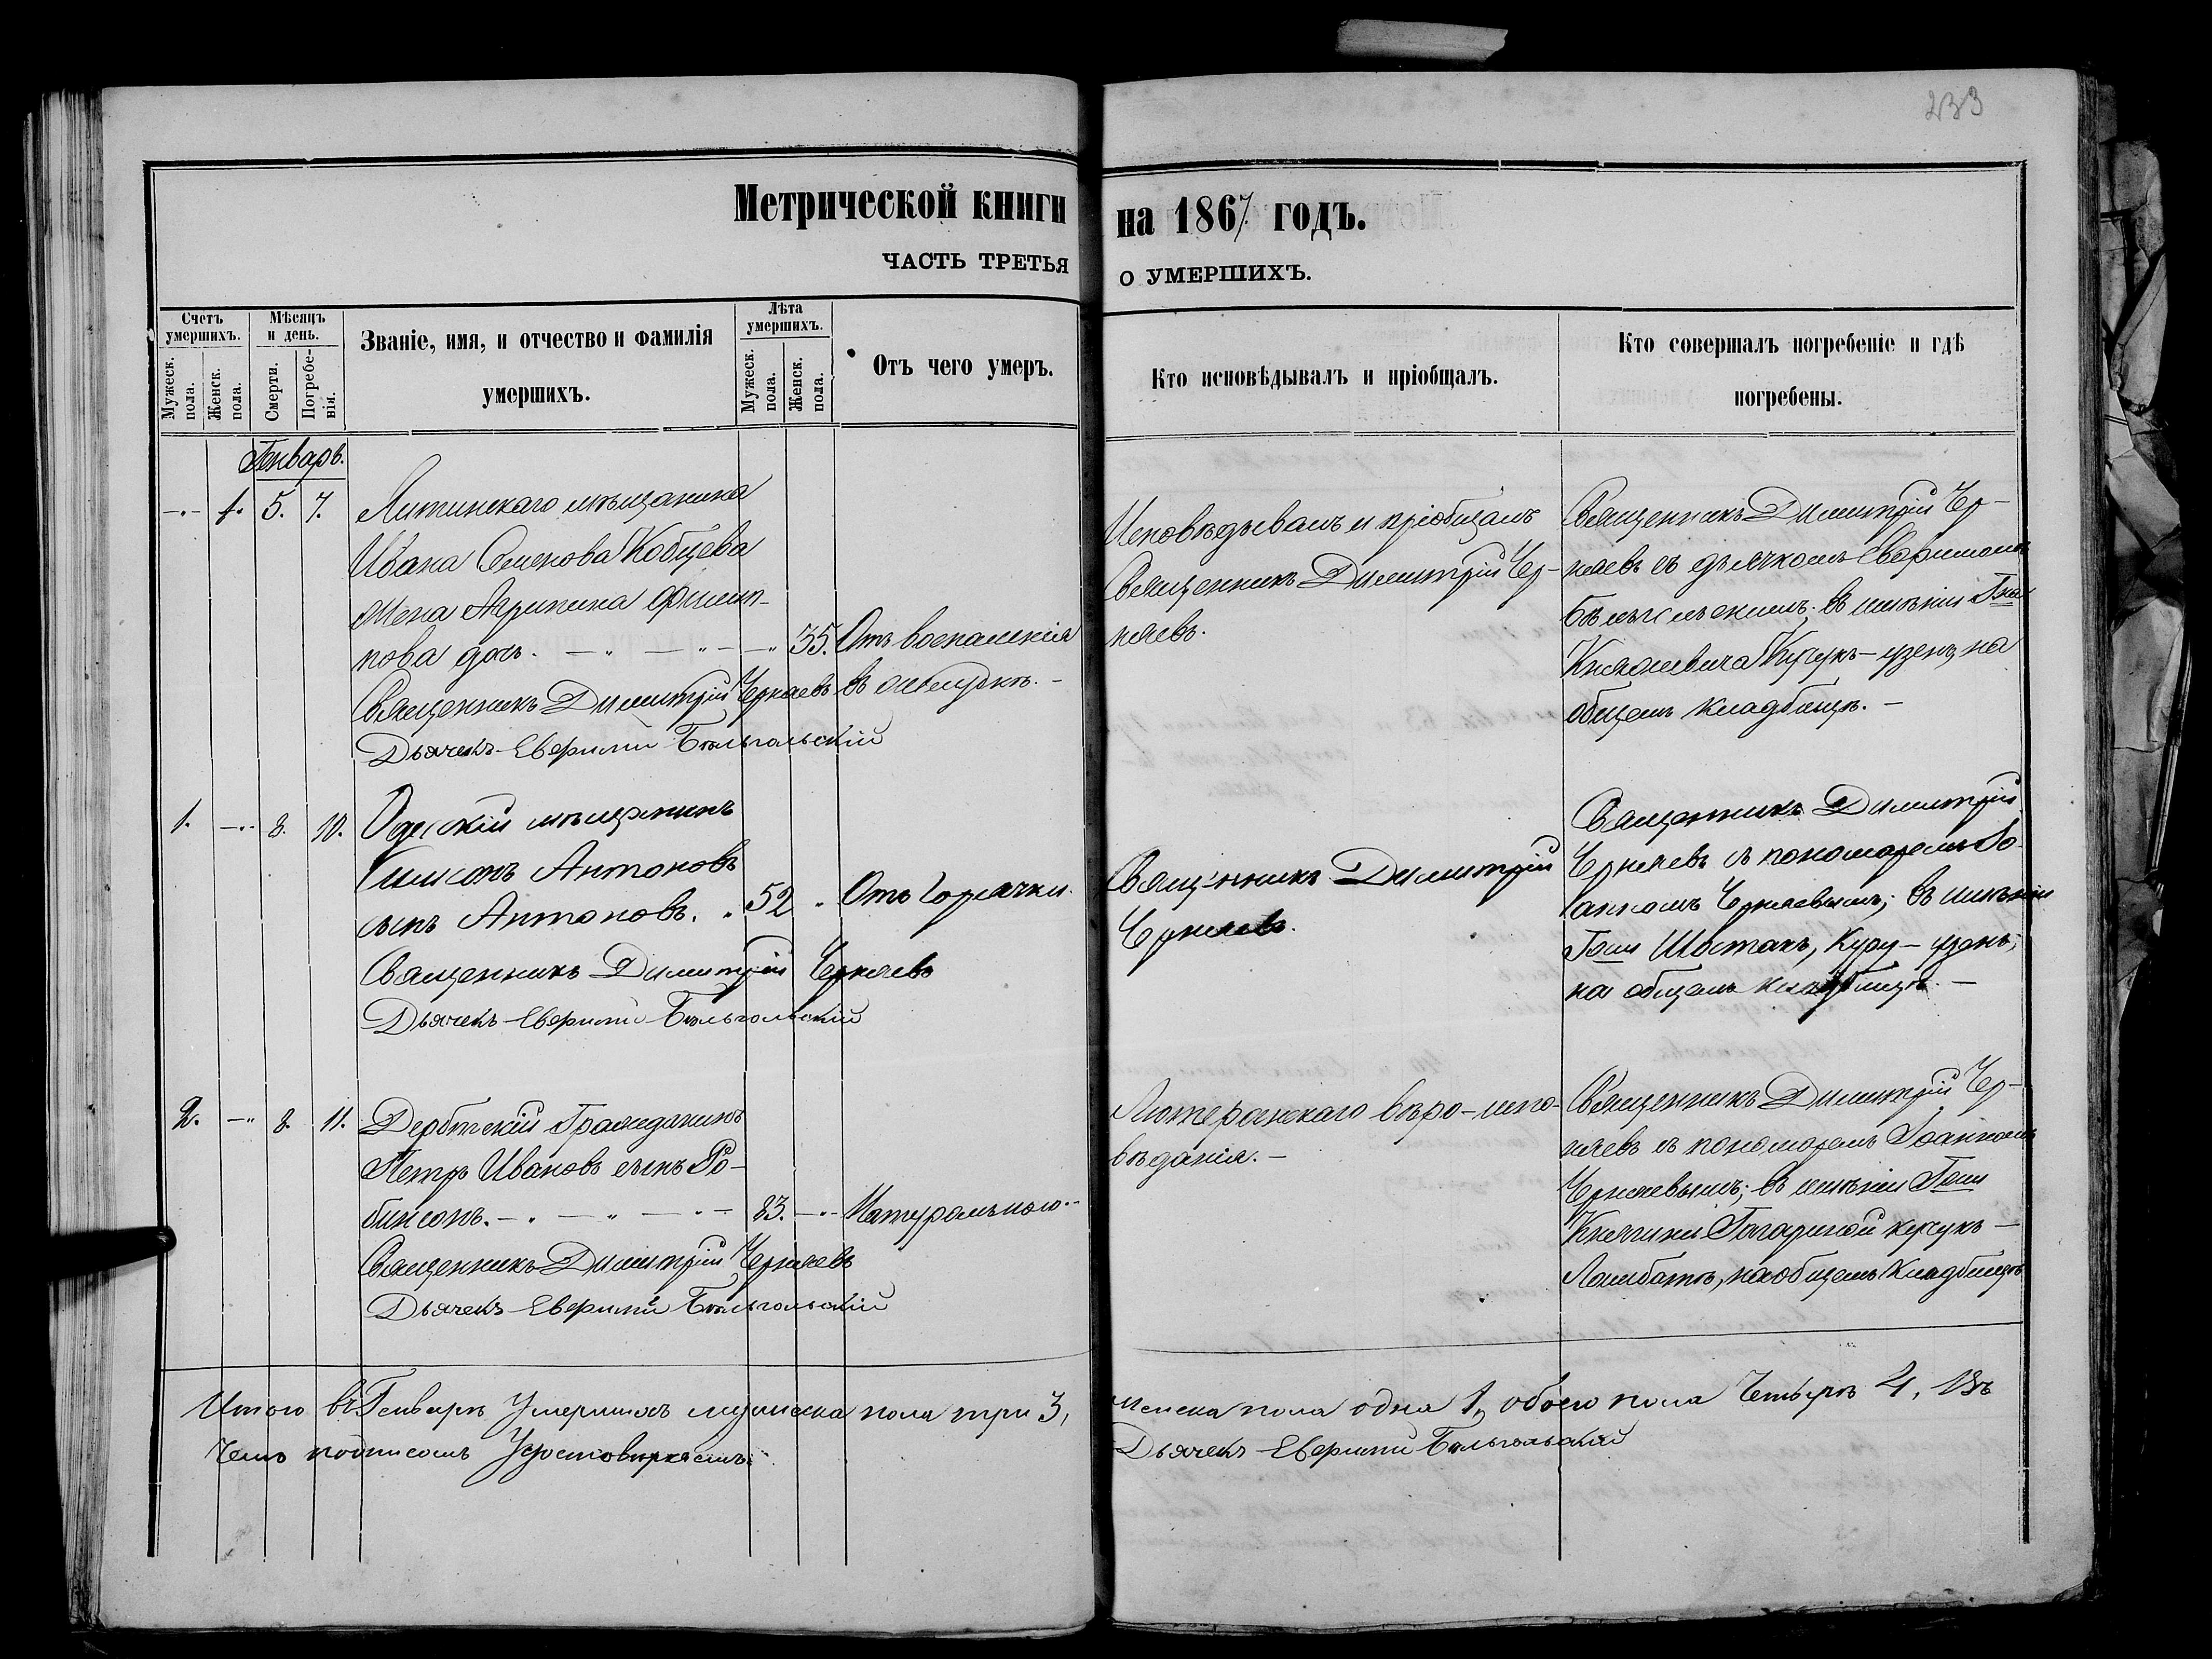 233
Метрической книги на 1867 годъ.
ЧАСТЬ ТРЕТЬЯ О УМЕРШИХЪ.
Счетъ умершихъ.
Мужеск. пола.
Женск. пола.
Мѣсяцъ и день.
Смерти.
Погребенія.
Званіе, имя, и отчество и фамилія
умершихъ.
Лѣта умершихъ.
Мужеск. пола.
Женск. пола.
Отъ чего умеръ.
Кто исповѣдывалъ и пріобщалъ.
Кто совершалъ погребеніе и гдѣ
погребены.
Генварь.
1. 5. 7.
Литинскаго мѣщанина
Ивана Семенова Кобцева
жена Агрипина Филип-
пова дочь. 35.
Отъ воспаленія
въ
Священникъ Димитрій Черняевъ
Дьячекъ Евфимій Бѣльгольскій
Исповѣдывалъ и пріобщалъ
Священникъ Димитрій Чер-
няевъ.
Священникъ Димитрій Чер-
няевъ съ дьячкомъ Евфиміемъ
въ имѣніи Гна
Княжевича Кучукъ-узень, на
общемъ кладбищѣ.
1. 8. 10.
Одесскій мѣщанинъ
Симеонъ Антоновъ
сынъ Антоновъ. 52
Отъ горячки.
Священникъ Димитрій Черняевъ
Дьячекъ Евфимій Бѣльгольскій
Священникъ Димитрій
Черняевъ.
Священникъ Димитрій
Черняевъ съ пономаремъ Іо-
анномъ Черняевымъ; въ имѣніи
Гжи Шостакъ, Куру-узень;
на общемъ кладбищѣ.
2. 8. 11.
Дербтскій Гражданинъ
Петръ Ивановъ сынъ Ро-
бинсонъ. 83.
Натуральною.
Священникъ Димитрій Черняевъ
Дьячекъ Евфимій Бѣльгольскій
Лютеранскаго вѣро-испо-
вѣданія.
Священникъ Димитрій Чер-
няевъ съ пономаремъ Іоанномъ
Черняевымъ; въ имѣніи Гжи
Княгини Гагариной кучукъ-
Ламбатѣ, на общемъ кладбищѣ
Итого въ Генварѣ Умершихъ мужеска пола три 3, женска пола одна 1, обоего пола Четыре 4, Въ
Чемъ подписомъ Удостовѣряемъ:
Дьячекъ Евфимій Бѣльгольскій